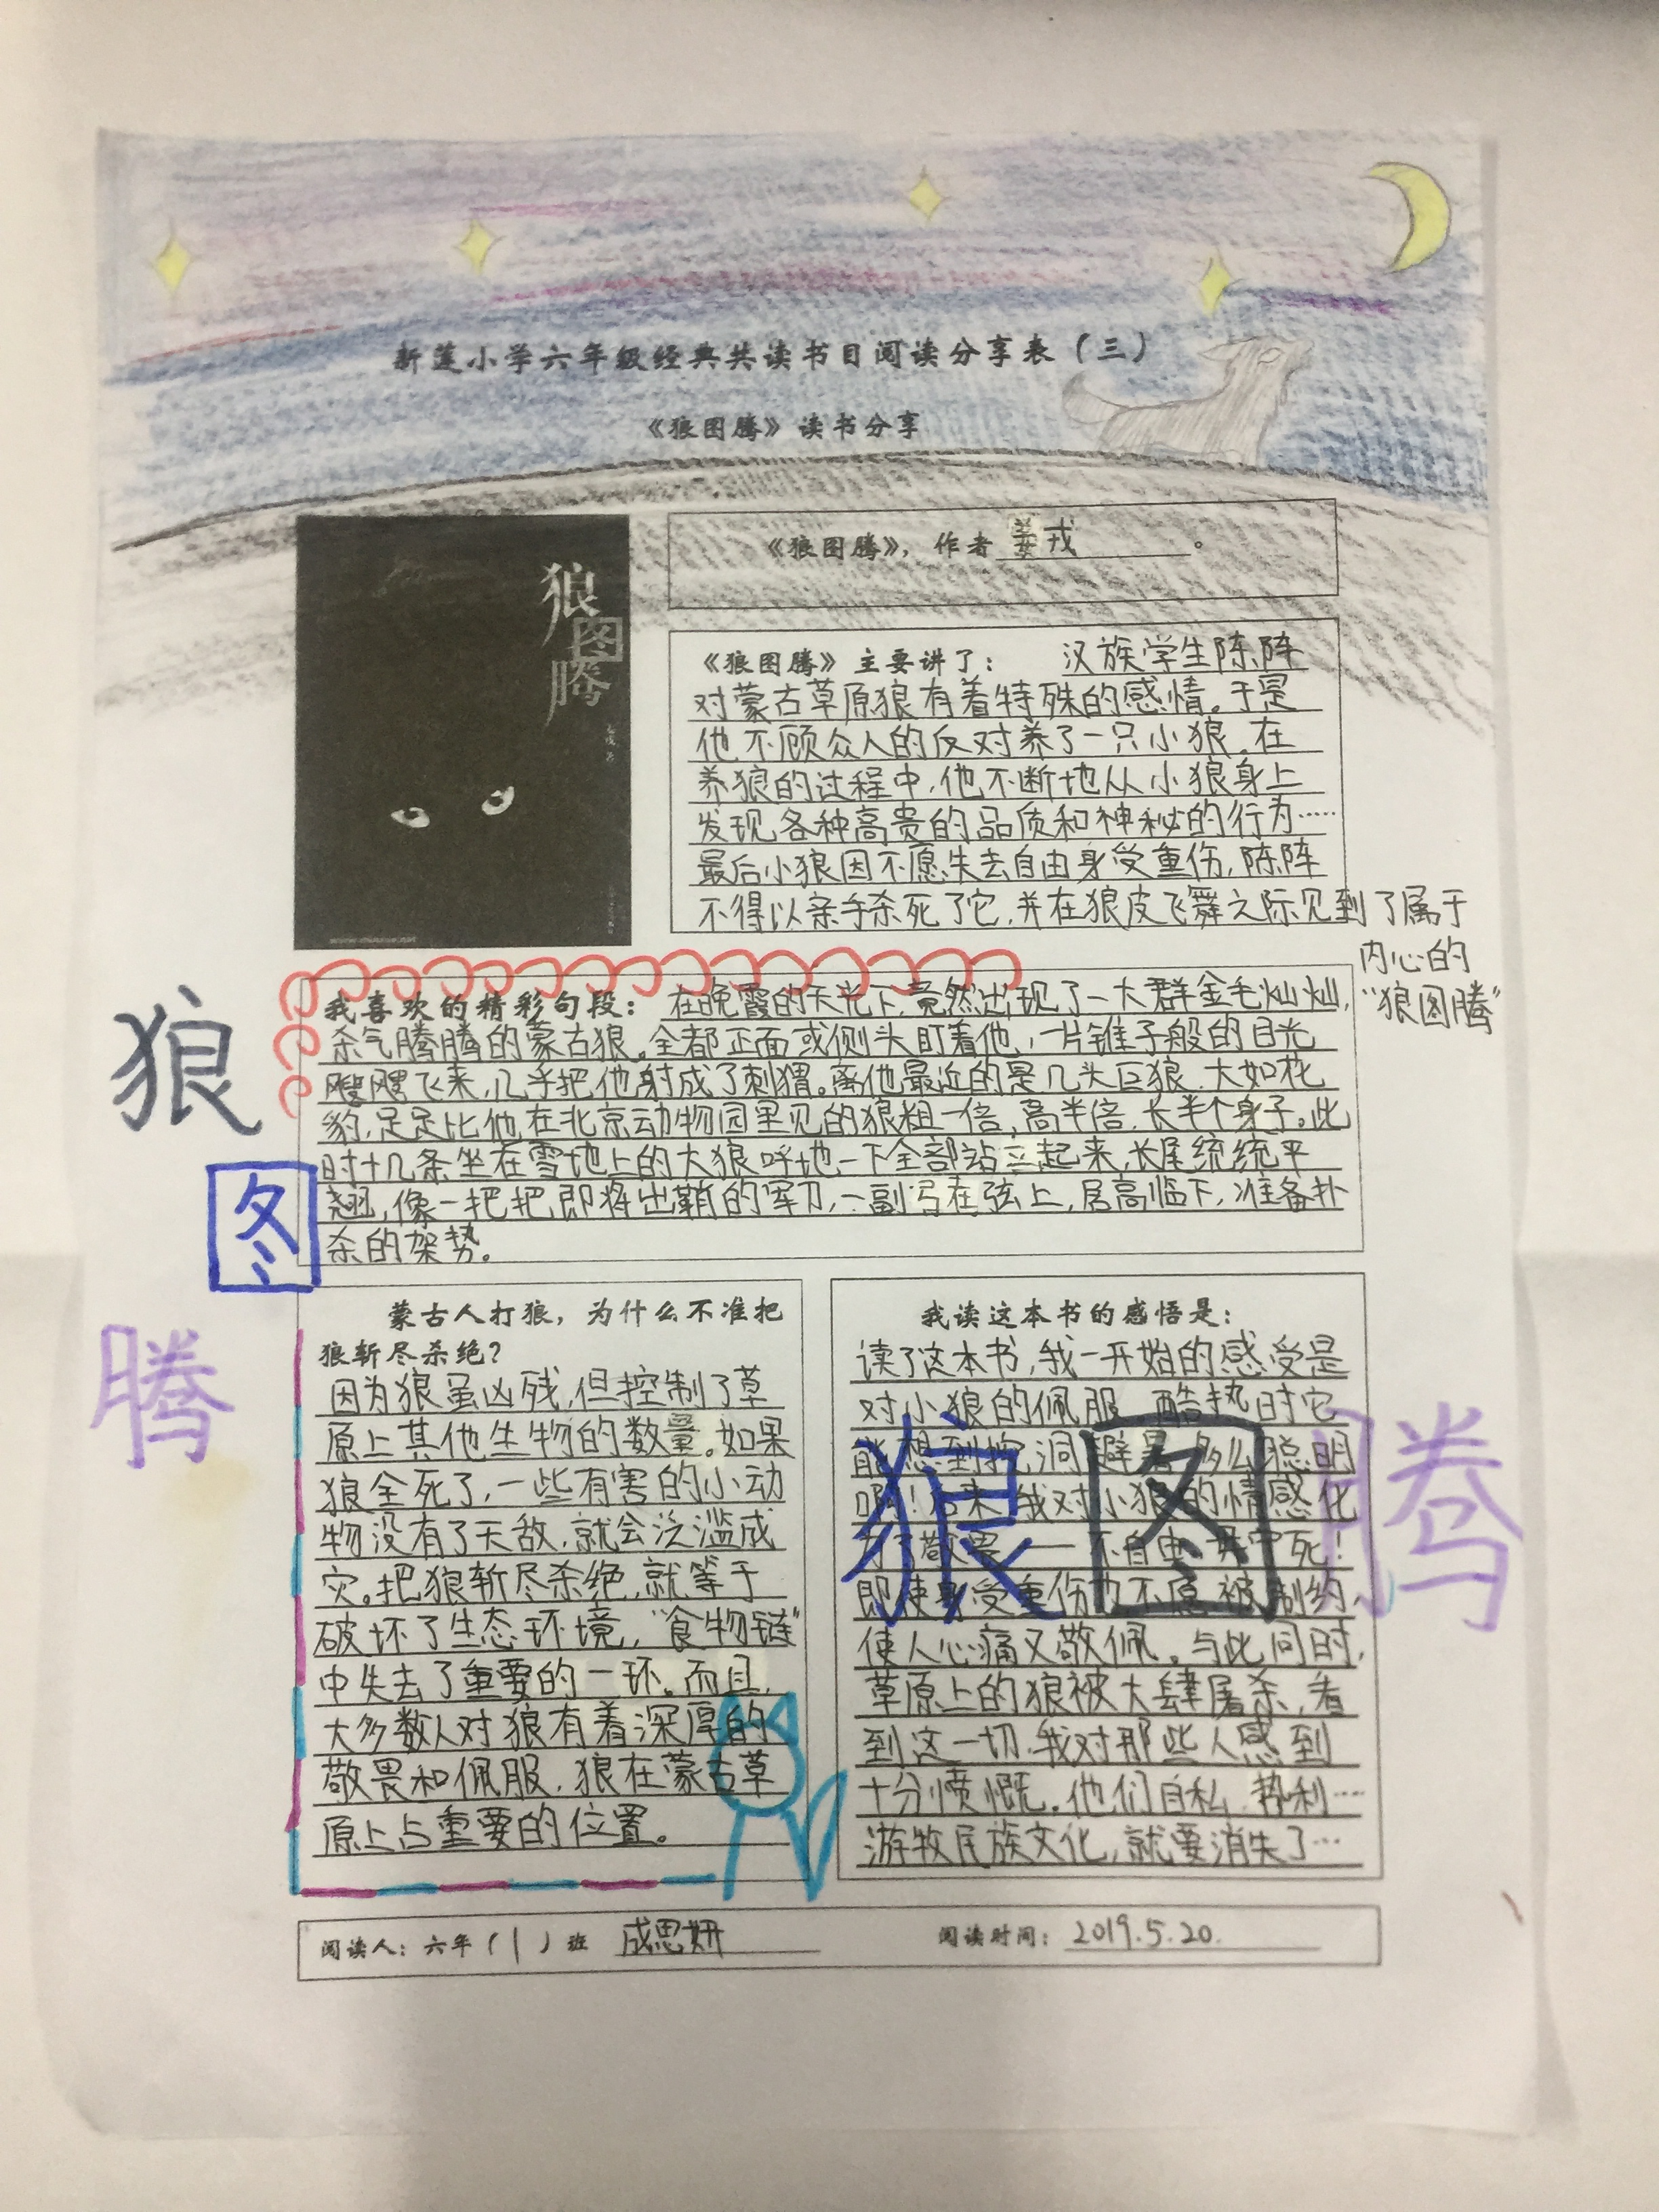 新莲小学六年级经典共读书目阅读分享表（三）
《狼图腾》读书分享
狼
图
腾
《狼图腾》，作者 姜戎 。
《狼图腾》主要讲了： 汉族学生陈阵
对蒙古草原狼有着特殊的感情。于是
他不顾众人的反对养了一只小狼。在
养狼的过程中，他不断地从小狼身上
发现各种高贵的品质和神秘的行为……
最后小狼因不愿失去自由身受重伤，陈阵
不得以亲手杀死了它，并在狼皮飞舞之际见到了属于
内心的
“狼图腾”
我喜欢的精彩句段： 在晚霞的天光下，竟然出现了一大群金毛灿灿，
杀气腾腾的蒙古狼。全都正面或侧头盯着他，一片锥子般的目光
飕飕飞来，几乎把他射成了刺猬。离他最近的是几头巨狼，大如花
豹，足足比他在北京动物园里见的狼粗一倍，高半倍，长半个身子。此
时十几条坐在雪地上的大狼呼地一下全部站立起来，长尾统统平
翘，像一把把即将出鞘的军刀，一副弓在弦上，居高临下，准备扑
杀的架势。
狼
图
腾
蒙古人打狼，为什么不准把
狼斩尽杀绝？
因为狼虽凶残，但控制了草
原上其他生物的数量。如果
狼全死了，一些有害的小动
物没有了天敌，就会泛滥成
灾。把狼斩尽杀绝，就等于
破坏了生态环境，“食物链”
中失去了重要的一环。而且，
大多数人对狼有着深厚的
敬畏和佩服，狼在蒙古草
原上占重要的位置。
我读这本书的感悟是：
读了这本书，我一开始的感受是
对小狼的佩服，酷热时它
能想到挖洞避暑，多么聪明
啊！后来，我对小狼的情感化
为了敬畏——不自由，毋宁死！
即使身受重伤也不愿被制约，
使人心痛又敬佩。与此同时，
草原上的狼被大肆屠杀，看
到这一切，我对那些人感到
十分愤慨。他们自私、势利……
游牧民族文化，就要消失了…
狼图腾
阅读人：六年（1）班 成思妍 阅读时间：2019.5.20.